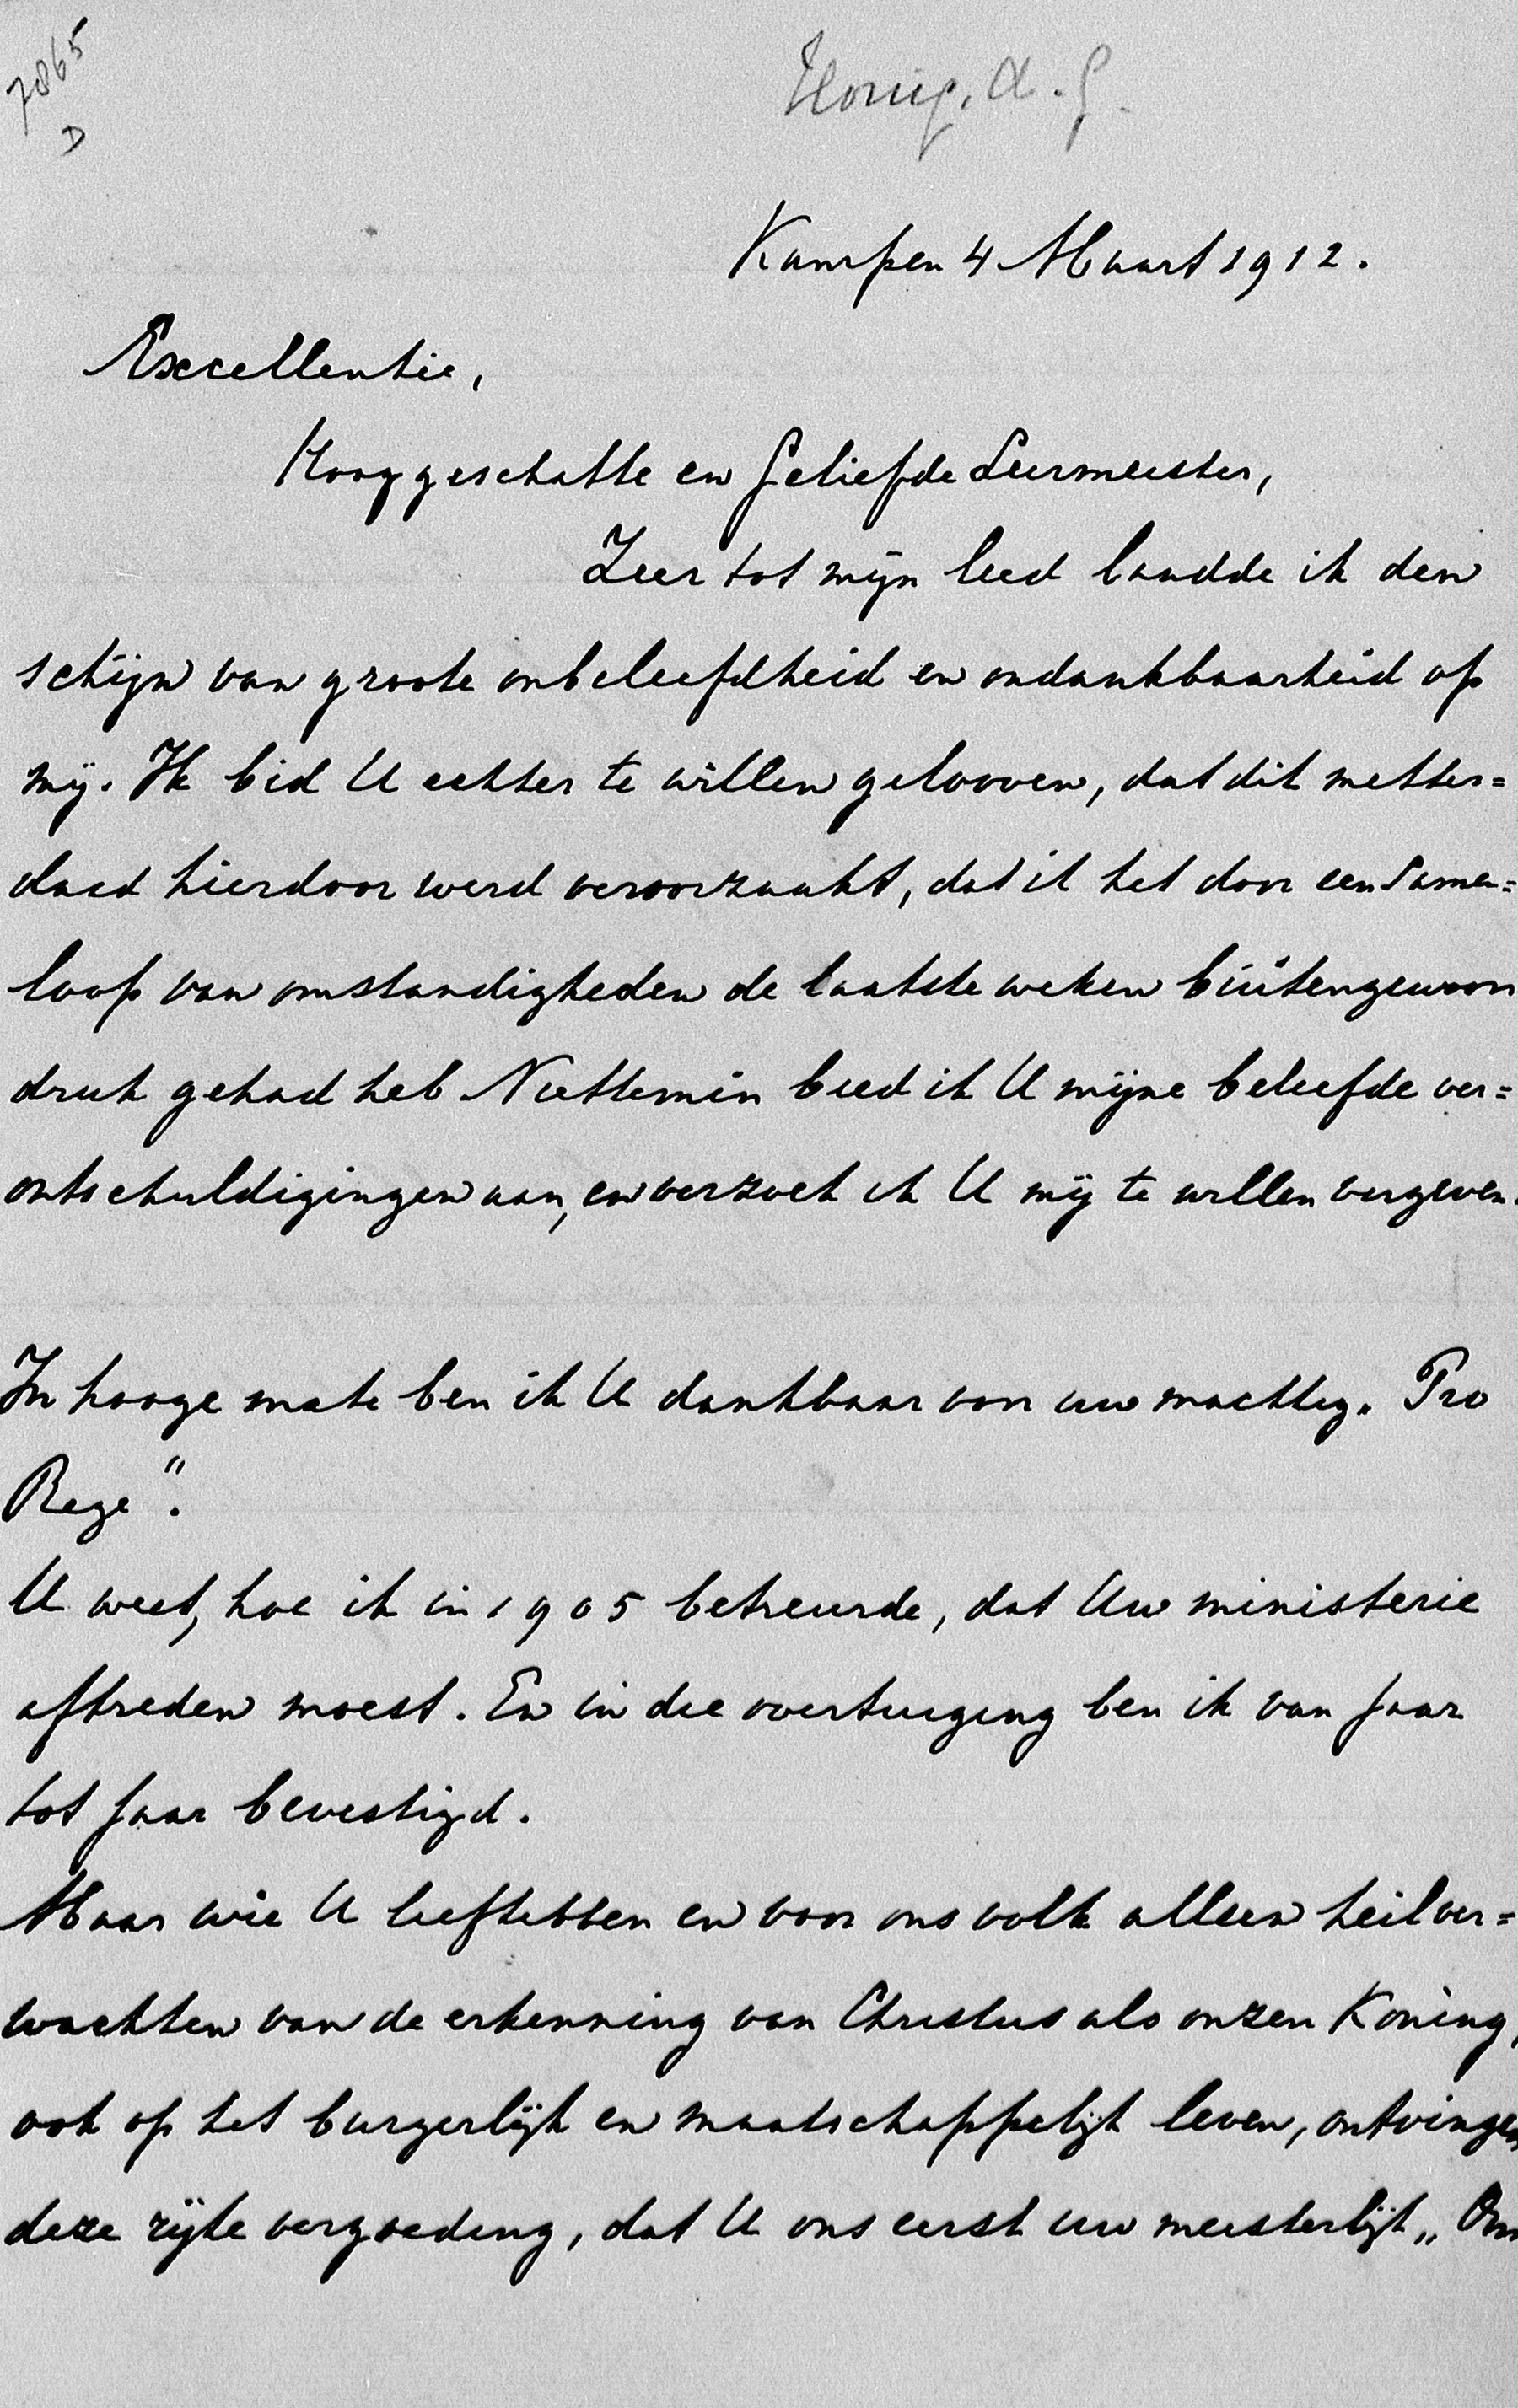 7865
D
Honig, A. G.
Kampen 4 Maart 1912.
Excellentie,
Hooggeschatte en Geliefde Leermeester,
Zeer tot mijn leed laadde ik den
schijn van groote onbeleefdheid en ondankbaarheid op
mij. Ik bid U echter te willen gelooven, dat dit metter=
daad hierdoor werd veroorzaakt, dat ik het door een samen=
loop van omstandigheden de laatste weken buitengewoon
druk gehad heb Niettemin bied ik U mijne beleefde ver=
ontschuldigingen aan, en verzoek ik U mij te willen vergeven.
In hooge mate ben ik U dankbaar voor uw machtig. Pro
Rege".
U weet, hoe ik in 1905 betreurde, dat Uw ministerie
aftreden moest. En in die overtuiging ben ik van jaar
tot jaar bevestigd.
Maar wie U liefhebben en voor ons volk alleen heil ver=
wachten van de erkenning van Christus als onzen Koning,
ook op het burgerlijk en maatschappelijk leven, ontvingen
deze rijke vergoeding, dat U ons eerst uw meesterlijk „Om